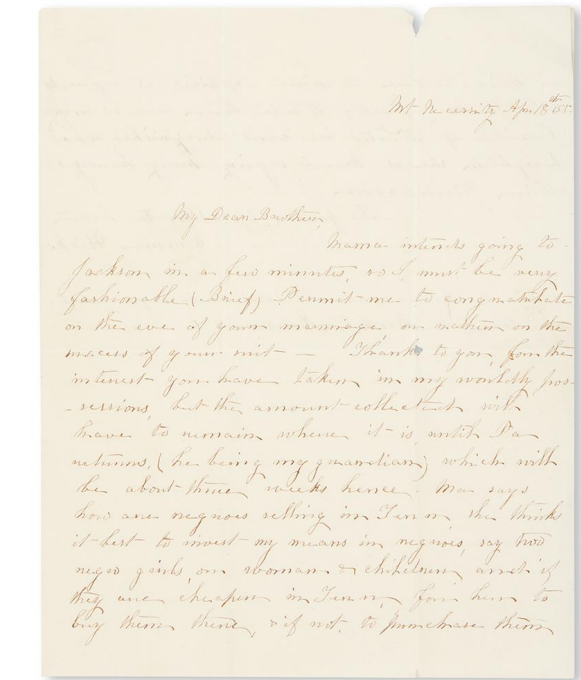 Mt Necessity Apr 18th 55
My Dear Brother,
Mama intends going to
Jackson in a few minutes, so I must be very
fashionable (Brief) Permit me to congratulate
on the eve of your marriage, or rather on the
success of your suit — Thanks to you, for the
interest you have taken in my worldly pos-
-sessions, but the amount collected will
have to remain where it is until Pa
returns, (he being my guardian) which will
be about three weeks hence. Ma says
how are negroes selling in Tenn, she thinks
it best to invest my means in negroes, say two
negro girls, or woman & children, and if
they are cheaper in Tenn, for him to
buy them there, & if not, to purchase them